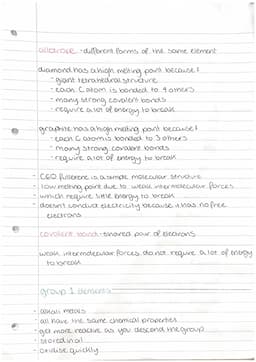 allotrope - different forms of the same element
diamond has a high melting point because:
- giant tetrahedral structure
- each C atom is bonded to 4 others
- many strong covalent bonds
- require a lot of energy to break
graphite has a high melting point because:
- each C atom is bonded to 3 others
- many strong covalent bonds
- require a lot of energy to break
- C60 fullerene is a simple molecular structure
- low melting point due to weak intermolecular forces
- which require little energy to break
- doesn't conduct electricity because it has no free
electrons
covalent bond - shared pair of electrons
weak intermolecular forces do not require a lot of energy
to break
group 1 elements
- alkali metals
- all have the same chemical properties
- get more reactive as you descend the group
- stored in oil
- oxidise quickly